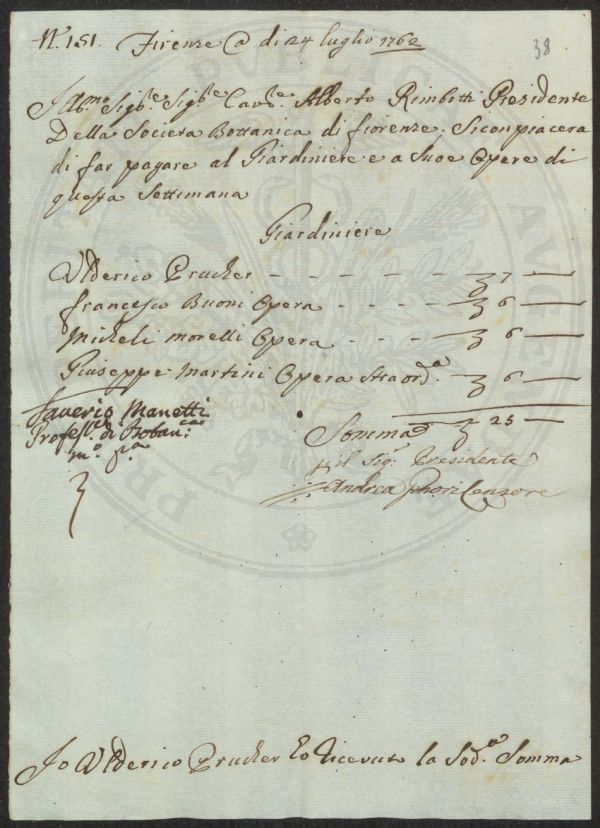 N.° 151. Firenze @ di 24 luglio 1762
38
Ill.mo Sig.re Sig.re Cav.re Alberto Rimbotti Presidente
Della Societa Bottanica di fiorenze; Siconpiacera
di far pagare al Giardiniere e a Suoe Opere di
questa Settimana
Giardiniere
Ulderico Prucker - - - - - - 7 —
francesco Buoni Opera - - - - 6 —
Micheli morelli Opera - - - 6 —
Giuseppe Martini Opera Straord.a 6 —
Saverio Manetti
Profess.re di Botan.ca
m.o p.a
Somma 25 —
il Sig.r Presidente
Andrea Censore
Io Ulderico Prucker ho ricevuto la Sod.a Somma
PVBLICAE
AVGENDO